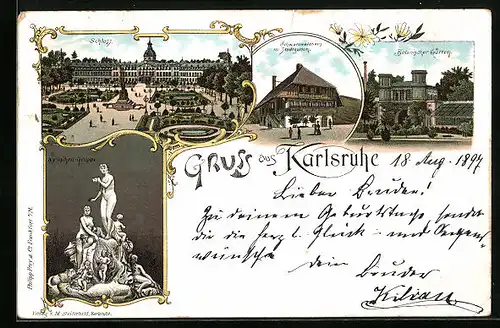 Schloss.
Schwarzwaldhaus
im Stadtgarten.
Botanischer Garten
Gruss aus Karlsruhe
18 Aug. 1897
Lieber Bruder!
Zu deinem Geburtstage, sendet
dir die herzl. Glück- und Segen-
wünsche dein
Bruder
Kilian